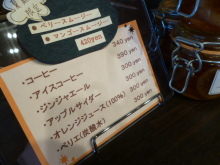 ベリースムージー
マンゴースムージー
420yen
・コーヒー 340 yen
・アイスコーヒー 390 yen
・ジンジャエール 300 yen
・アップルサイダー 390 yen
・オレンジジュース(100%) 300 yen
・ペリエ(炭酸水)